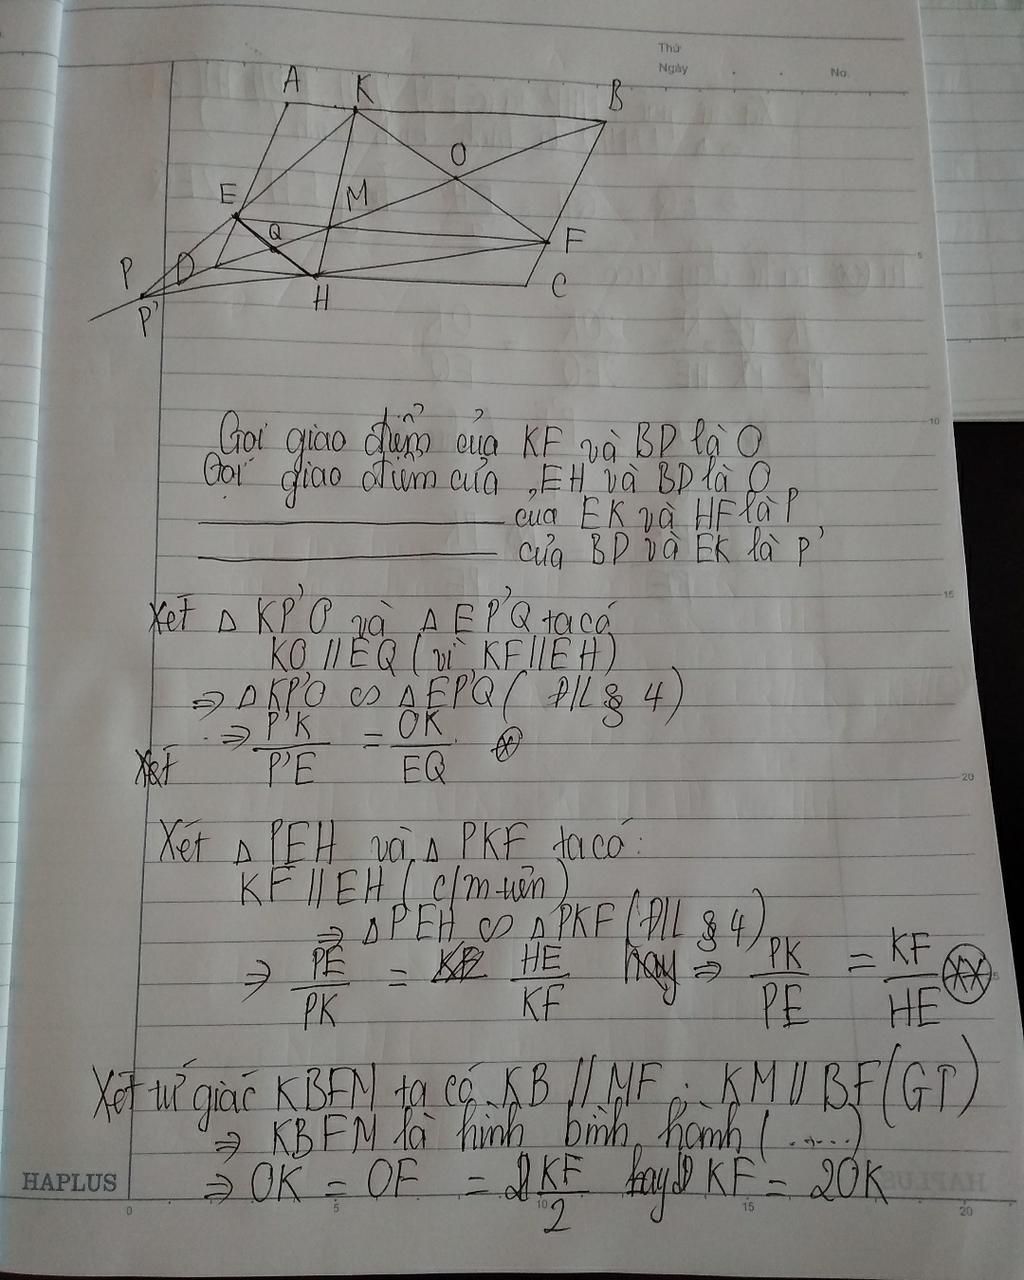 Thứ
Ngày
No.
A K B
O
E M
Q F
P D
P' H C
5
Gọi giao điểm của KF và BD là O
Gọi giao điểm của EH và BD là Q
10
của EK và HF là P
của BD và EK là P'
15
Xét △ KP'O và △ EP'Q ta có
KO // EQ (vì KF // EH)
⇒ △KP'O ∽ △EP'Q ( Đ/L § 4)
⇒ P'K/P'E = OK/EQ (*)
Xét
20
Xét △ PEH và △ PKF ta có:
KF // EH ( c/m trên)
⇒ △PEH ∽ △PKF (Đ/L § 4)
⇒ PE/PK = HE/KF hay ⇒ PK/PE = KF/HE (**)
Xét tứ giác KBFM ta có KB // MF ; KM // BF (GT)
⇒ KBFM là hình bình hành (......)
⇒ OK = OF = KF/2 hay KF = 2OK
HAPLUS
0 5 10 15 20